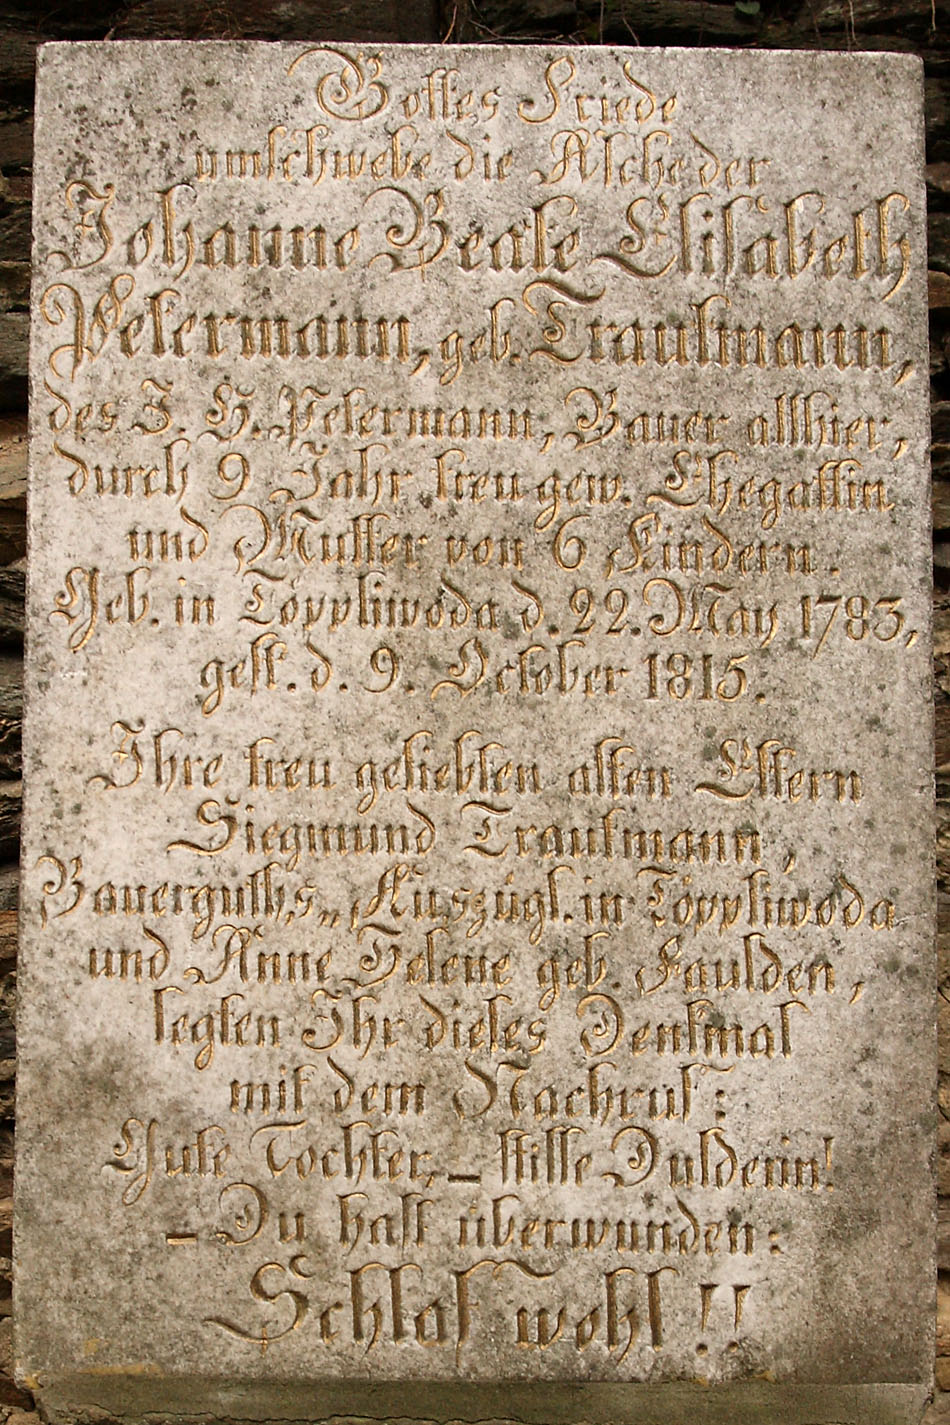 Gottes Friede
umschwebe die Asche der
Johanne Beate Elisabeth
Petermann, geb. Trautmann,
des J. H. Petermann, Bauer allhier,
durch 9 Jahr treu gew. Ehegattin
und Mutter von 6 Kindern.
Geb. in Töppliwoda d. 22. May 1783,
gest. d. 9. October 1815.
Ihre treu geliebten alten Eltern
Siegmund Trautmann,
Bauerguths„Auszügl. in Töppliwoda
und Anne Helene geb. Faulden,
setzten Ihr dieses Denkmal
mit dem Nachruf:
Gute Tochter, – stille Duldenin!
– Du hast überwunden:
Schlaf wohl !!